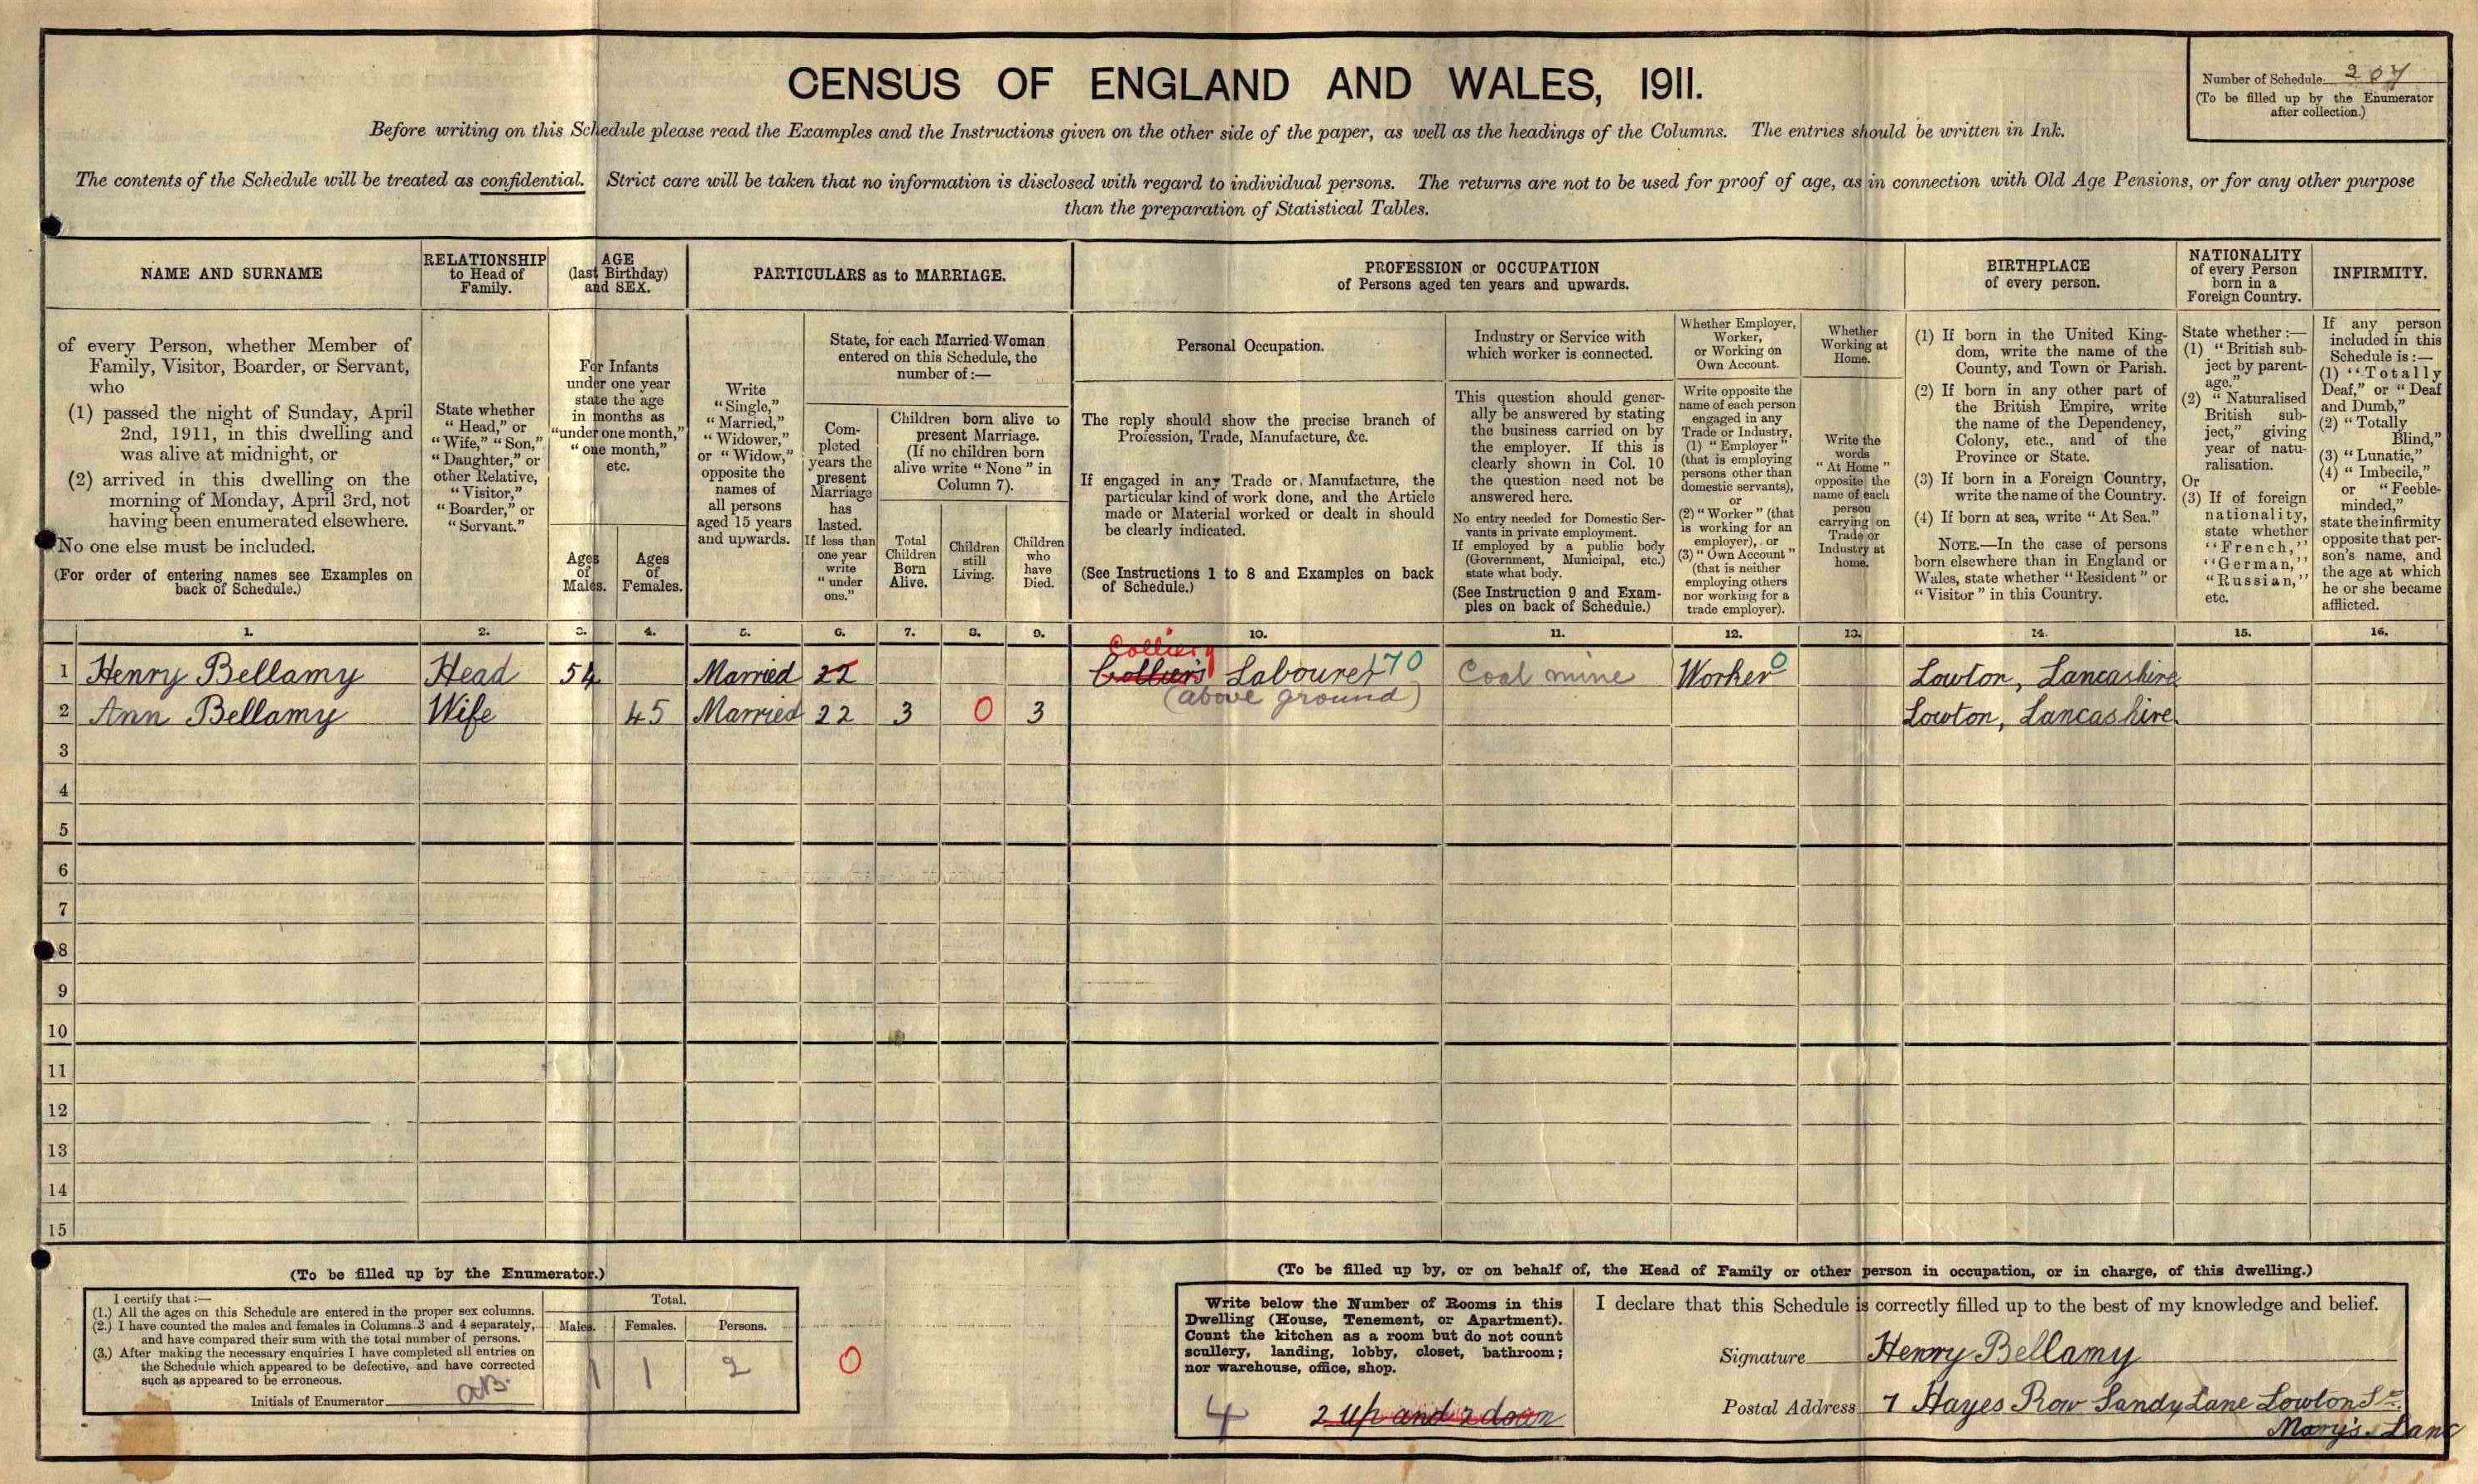 CENSUS OF ENGLAND AND WALES, 1911.
Number of Schedule 207
(To be filled up by the Enumerator
after collection.)
Before writing on this Schedule please read the Examples and the Instructions given on the other side of the paper, as well as the headings of the Columns. The entries should be written in Ink.
The contents of the Schedule will be treated as confidential. Strict care will be taken that no information is disclosed with regard to individual persons. The returns are not to be used for proof of age, as in connection with Old Age Pensions, or for any other purpose
than the preparation of Statistical Tables.
NAME AND SURNAME
of every Person, whether Member of
Family, Visitor, Boarder, or Servant,
who
(1) passed the night of Sunday, April
2nd, 1911, in this dwelling and
was alive at midnight, or
(2) arrived in this dwelling on the
morning of Monday, April 3rd, not
having been enumerated elsewhere.
No one else must be included.
(For order of entering names see Examples on
back of Schedule.)
RELATIONSHIP
to Head of
Family.
State whether
"Head," or
"Wife," "Son,"
"Daughter," or
other Relative,
"Visitor,"
"Boarder," or
"Servant."
AGE
(last Birthday)
and SEX.
For Infants
under one year
state the age
in months as
"under one month,"
"one month,"
etc.
Ages
of
Males.
Ages
of
Females.
PARTICULARS as to MARRIAGE.
Write
"Single,"
"Married,"
"Widower,"
or "Widow,"
opposite the
names of
all persons
aged 15 years
and upwards.
State, for each Married Woman
entered on this Schedule, the
number of:—
Com-
pleted
years the
present
Marriage
has
lasted.
If less than
one year
write
"under
one."
Children born alive to
present Marriage.
(If no children born
alive write "None" in
Column 7).
Total
Children
Born
Alive.
Children
still
Living.
Children
who
have
Died.
PROFESSION or OCCUPATION
of Persons aged ten years and upwards.
Personal Occupation.
The reply should show the precise branch of
Profession, Trade, Manufacture, &c.
If engaged in any Trade or Manufacture, the
particular kind of work done, and the Article
made or Material worked or dealt in should
be clearly indicated.
(See Instructions 1 to 8 and Examples on back
of Schedule.)
Industry or Service with
which worker is connected.
This question should gener-
ally be answered by stating
the business carried on by
the employer. If this is
clearly shown in Col. 10
the question need not be
answered here.
No entry needed for Domestic Ser-
vants in private employment.
If employed by a public body
(Government, Municipal, etc.)
state what body.
(See Instruction 9 and Exam-
ples on back of Schedule.)
Whether Employer,
Worker,
or Working on
Own Account.
Write opposite the
name of each person
engaged in any
Trade or Industry,
(1) "Employer"
(that is employing
persons other than
domestic servants),
or
(2) "Worker" (that
is working for an
employer), or
(3) "Own Account"
(that is neither
employing others
nor working for a
trade employer).
Whether
Working at
Home.
Write the
words
"At Home"
opposite the
name of each
person
carrying on
Trade or
Industry at
home.
BIRTHPLACE
of every person.
(1) If born in the United King-
dom, write the name of the
County, and Town or Parish.
(2) If born in any other part of
the British Empire, write
the name of the Dependency,
Colony, etc., and of the
Province or State.
(3) If born in a Foreign Country,
write the name of the Country.
(4) If born at sea, write "At Sea."
NOTE.—In the case of persons
born elsewhere than in England or
Wales, state whether "Resident" or
"Visitor" in this Country.
NATIONALITY
of every Person
born in a
Foreign Country.
State whether:—
(1) "British sub-
ject by parent-
age,"
(2) "Naturalised
British sub-
ject," giving
year of natu-
ralisation.
Or
(3) If of foreign
nationality,
state whether
"French,"
"German,"
"Russian,"
etc.
INFIRMITY.
If any person
included in this
Schedule is:—
(1) "Totally
Deaf," or "Deaf
and Dumb,"
(2) "Totally
Blind,"
(3) "Lunatic,"
(4) "Imbecile,"
or "Feeble-
minded,"
state the infirmity
opposite that per-
son's name, and
the age at which
he or she became
afflicted.
1. 2. 3. 4. 5. 6. 7. 8. 9. 10. 11. 12. 13. 14. 15. 16.
Colliery
1 Henry Bellamy Head 54 Married 22 Collier's Labourer 170 Coal mine Worker 0 Lowton, Lancashire
(above ground)
2 Ann Bellamy Wife 45 Married 22 3 0 3 Lowton, Lancashire
3
4
5
6
7
8
9
10
11
12
13
14
15
(To be filled up by the Enumerator.)
I certify that:—
(1.) All the ages on this Schedule are entered in the proper sex columns.
(2.) I have counted the males and females in Columns 3 and 4 separately,
and have compared their sum with the total number of persons.
(3.) After making the necessary enquiries I have completed all entries on
the Schedule which appeared to be defective, and have corrected
such as appeared to be erroneous.
Initials of Enumerator
Total.
Males. Females. Persons.
1 1 2
0
(To be filled up by, or on behalf of, the Head of Family or other person in occupation, or in charge, of this dwelling.)
Write below the Number of Rooms in this
Dwelling (House, Tenement, or Apartment).
Count the kitchen as a room but do not count
scullery, landing, lobby, closet, bathroom;
nor warehouse, office, shop.
4 2 up and 2 down
I declare that this Schedule is correctly filled up to the best of my knowledge and belief.
Signature Henry Bellamy
Postal Address 7 Hayes Row Sandy Lane Lowton St
Mary's. Lanc